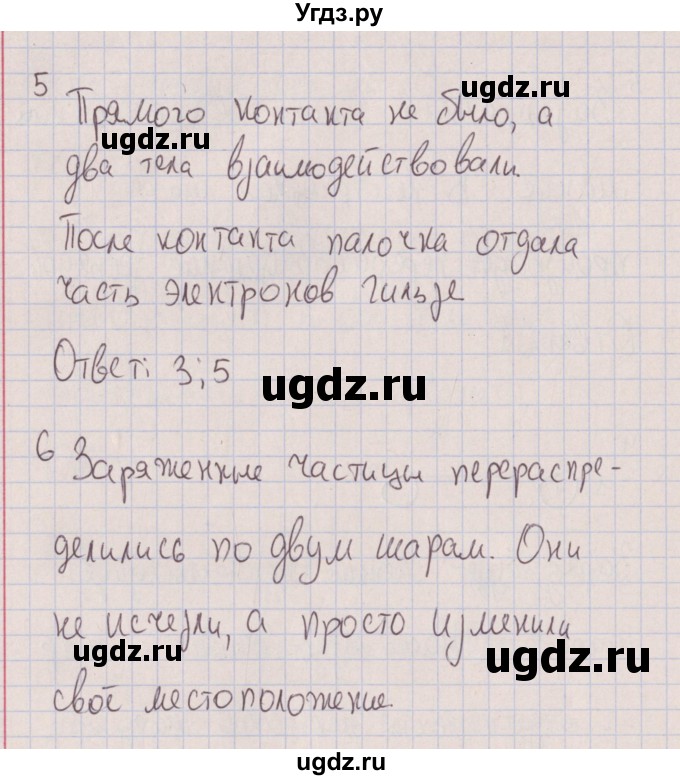 Угдз.ру
5
Прямого контакта не было, а
ugdz.ru
два тела взаимодействовали.
ugdz.ru
После контакта палочка отдала
часть электронов гильзе
Ответ: 3; 5
ugdz.ru
6 Заряженные частицы перераспре-
делились по двум шарам. Они
не исчезли, а просто изменили
ugdz.ru
ugdz.ru
своё местоположение.
ugdz.ru